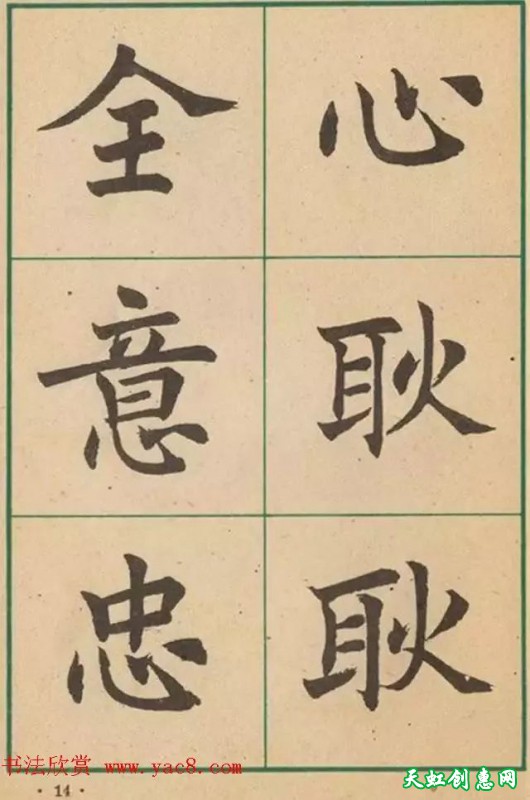 心耿耿
全意忠
书法欣赏 www.yac8.com
·14·
天虹创惠网